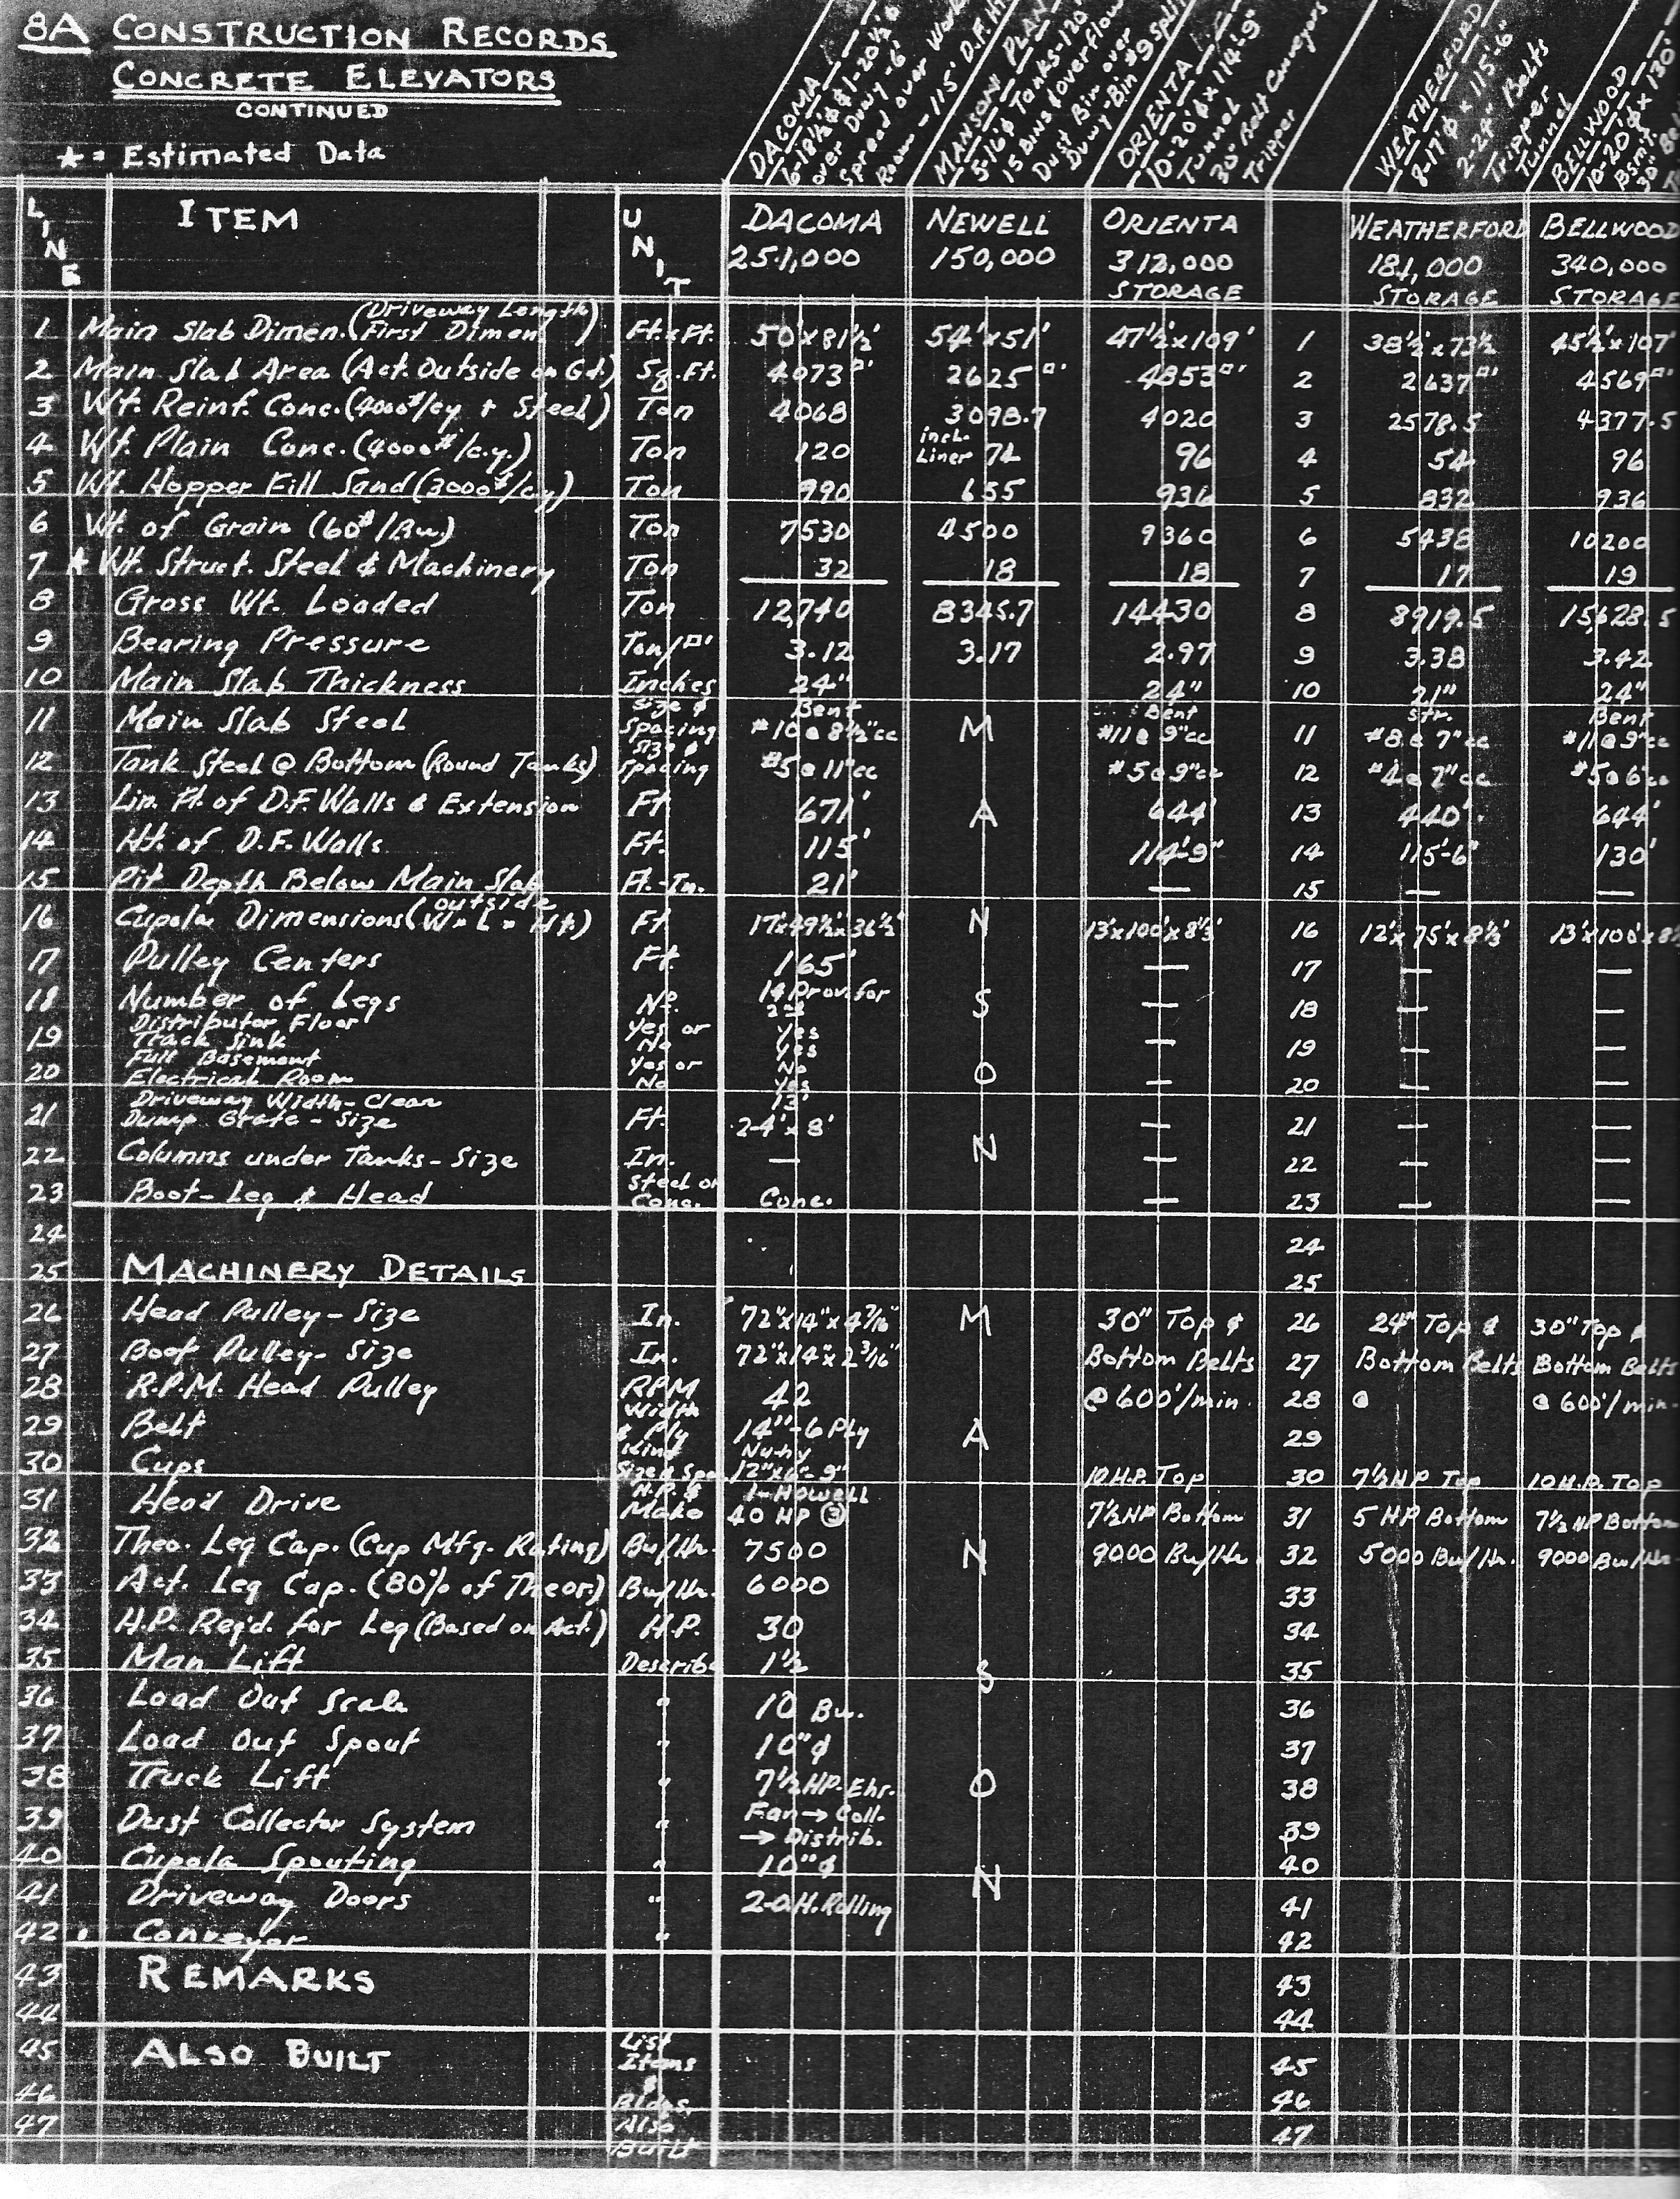 8A CONSTRUCTION RECORDS
CONCRETE ELEVATORS
CONTINUED
★ = Estimated Data
DACOMA
6-18½'φ & 1-20½'φ
over Dvwy-6'
Spread over Work
Room - 115' D.F. Ht
MANSON PLAN
5-16'φ Tanks-120'
15 Bins & overflow
Dust Bin over
Dvwy-Bin #9 Split
ORIENTA
10-20'φ x 114'-9"
Tunnel
30" Belt Conveyors
Tripper
WEATHERFORD
8-17'φ x 115'-6"
2-24" Belts
Tripper
Tunnel
BELLWOOD
10-20'φ x 130'
Bsm't
30"
LINE ITEM UNIT DACOMA NEWELL ORIENTA WEATHERFORD BELLWOOD
251,000 150,000 312,000 181,000 340,000
STORAGE STORAGE STORAGE
1 Main Slab Dimen. (Driveway Length First Dimen) Ft.xFt. 50'x81½' 54'x51' 47½'x109' 1 38½'x73½ 45½'x107'
2 Main Slab Area (Act. Outside on Gd.) Sq.Ft. 4073□' 2625□' 4853□' 2 2637□' 4569□'
3 Wt. Reinf. Conc. (4000#/cy + Steel) Ton 4068 3098.7 4020 3 2578.5 4377.5
4 Wt. Plain Conc. (4000#/c.y.) Ton 120 incl. Liner 74 96 4 54 96
5 Wt. Hopper Fill Sand (3000#/cy) Ton 990 655 936 5 832 936
6 Wt. of Grain (60#/Bu.) Ton 7530 4500 9360 6 5438 10200
7 ★ Wt. Struct. Steel & Machinery Ton 32 18 18 7 17 19
8 Gross Wt. Loaded Ton 12,740 8345.7 14430 8 8919.5 15,628.5
9 Bearing Pressure Ton/□' 3.12 3.17 2.97 9 3.38 3.42
10 Main Slab Thickness Inches 24" 24" 10 21" 24"
11 Main Slab Steel Size & Spacing Bent #10@8½"cc M Bent #11@9"cc 11 Str. #8@7"cc Bent #11@9"cc
12 Tank Steel @ Bottom (Round Tanks) Size & Spacing #5@11"cc #5@9"cc 12 #4@7"cc #5@6"cc
13 Lin. Ft. of D.F. Walls & Extension Ft. 671' A 644' 13 440' 644'
14 Ht. of D.F. Walls Ft. 115' 114'-9" 14 115'-6" 130'
15 Pit Depth Below Main Slab Ft.-In. 21' — 15 — —
16 Cupola Dimensions (outside W x L x Ht.) Ft. 17'x49½'x36½' N 13'x100'x8⅓' 16 12'x75'x8⅓' 13'x100'x8⅓
17 Pulley Centers Ft. 165' — 17 — —
18 Number of Legs No. 1 & Prov. for 2nd S — 18 — —
19 Distributor Floor Track Sink Yes or No Yes Yes — 19 — —
20 Full Basement Electrical Room Yes or No No Yes O — 20 — —
21 Driveway Width-Clear Dump Grate-Size Ft. 13' 2-4'x8' — 21 — —
22 Columns under Tanks-Size In. — N — 22 — —
23 Boot-Leg & Head Steel or Conc. Conc. — 23 — —
24 24
25 MACHINERY DETAILS 25
26 Head Pulley-Size In. 72"x14"x4 7/16" M 30" Top & 26 24" Top & 30" Top &
27 Boot Pulley-Size In. 72"x14"x2 3/16" Bottom Belts 27 Bottom Belts Bottom Belts
28 R.P.M. Head Pulley RPM 42 @ 600'/min. 28 @ @ 600'/min.
29 Belt Width & Ply 14"-6 Ply A 29
30 Cups Kind Size & Spa. Nu-hy 12"x6"-9" 10 H.P. Top 30 7½ HP Top 10 H.P. Top
31 Head Drive H.P. & Make 1-Howell 40 HP ③ 7½ HP Bottom 31 5 HP Bottom 7½ HP Bottom
32 Theo. Leg Cap. (Cup Mfg. Rating) Bu/Hr. 7500 N 9000 Bu/Hr. 32 5000 Bu/Hr. 9000 Bu/Hr
33 Act. Leg Cap. (80% of Theor.) Bu/Hr. 6000 33
34 H.P. Req'd. for Leg (Based on Act.) H.P. 30 34
35 Man Lift Describe 1½ S 35
36 Load Out Scale " 10 Bu. 36
37 Load Out Spout " 10"φ 37
38 Truck Lift " 7½ HP-Ehr. O 38
39 Dust Collector System " Fan→Coll. →Distrib. 39
40 Cupola Spouting " 10"φ 40
41 Driveway Doors " 2-O.H. Rolling N 41
42 Conveyor " 42
43 REMARKS 43
44 44
45 ALSO BUILT List Items 45
46 & Bldgs. 46
47 Also Built 47